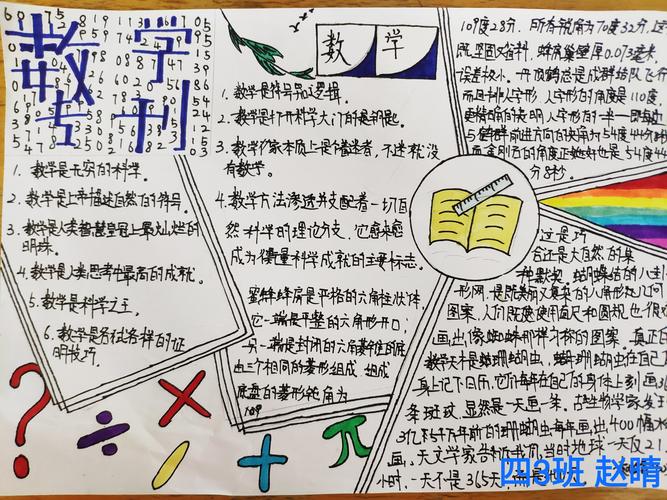 数学
专刊
1. 数学是无穷的科学。
2. 数学是上帝描述自然的符号。
3. 数学是人类智慧皇冠上最灿烂的
明珠。
4. 数学是人类思考中最高的成就。
5. 数学是科学之王。
6. 数学是各式各样的证
明技巧。
数 学
1. 数学是符号加逻辑。
2. 数学是打开科学大门的钥匙。
3. 数学家本质上是个着迷者,不迷就没
有数学。
4. 数学方法渗透并支配着一切自
然科学的理论分支,它愈来愈
成为衡量科学成就的主要标志。
蜜蜂蜂房是严格的六角柱状体,
它一端是平整的六角形开口,
另一端是封闭的六角菱锥形的底,
由三个相同的菱形组成。组成
底盘的菱形钝角为
109
109度28分,所有锐角为70度32分,这
既坚固又省料,蜂房巢壁厚0.073毫米,
误差极小。丹顶鹤总是成群结队飞行,
而且排人字形,人字形的角度是110度
更精确的表明人字形的一半即每边
与鹤群前进方向的夹角为54度44分8秒
而金刚石的角度正好也是54度44
分8秒。
这是巧
合还是大自然的某
种默契。蜘蛛结的八卦
形网,是既美丽又复杂的八角形几何
图案,人们既使用直尺和圆规也很难
画出像蜘蛛那样匀称的图案。真正的
数学天才是珊瑚虫,珊瑚虫在自己
身上记下日历,它们每年在自己的身体上刻画3
条斑纹,显然是一天画一条。古生物学家发
3亿5千万年前的珊瑚虫每年画出400幅水
画。天文学家告诉我们,当时地球一天仅21
小时,一天不是365天,而是
四3班 赵晴